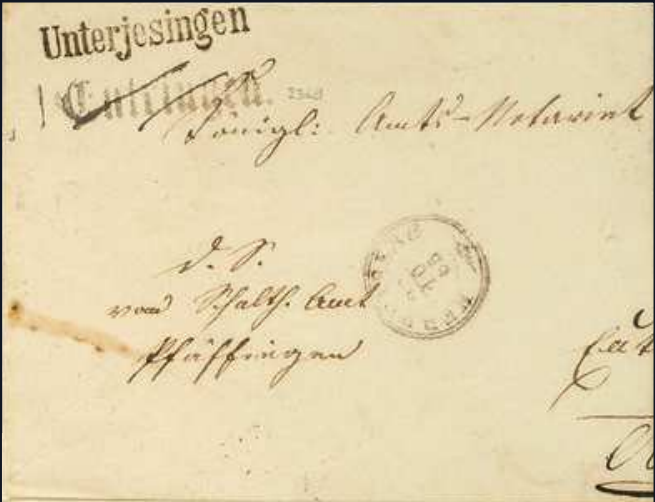 Unterjesingen
Entringen.
Königl: Amts-Notariat
d. S.
vom Schulth. Amt
Pfäffingen